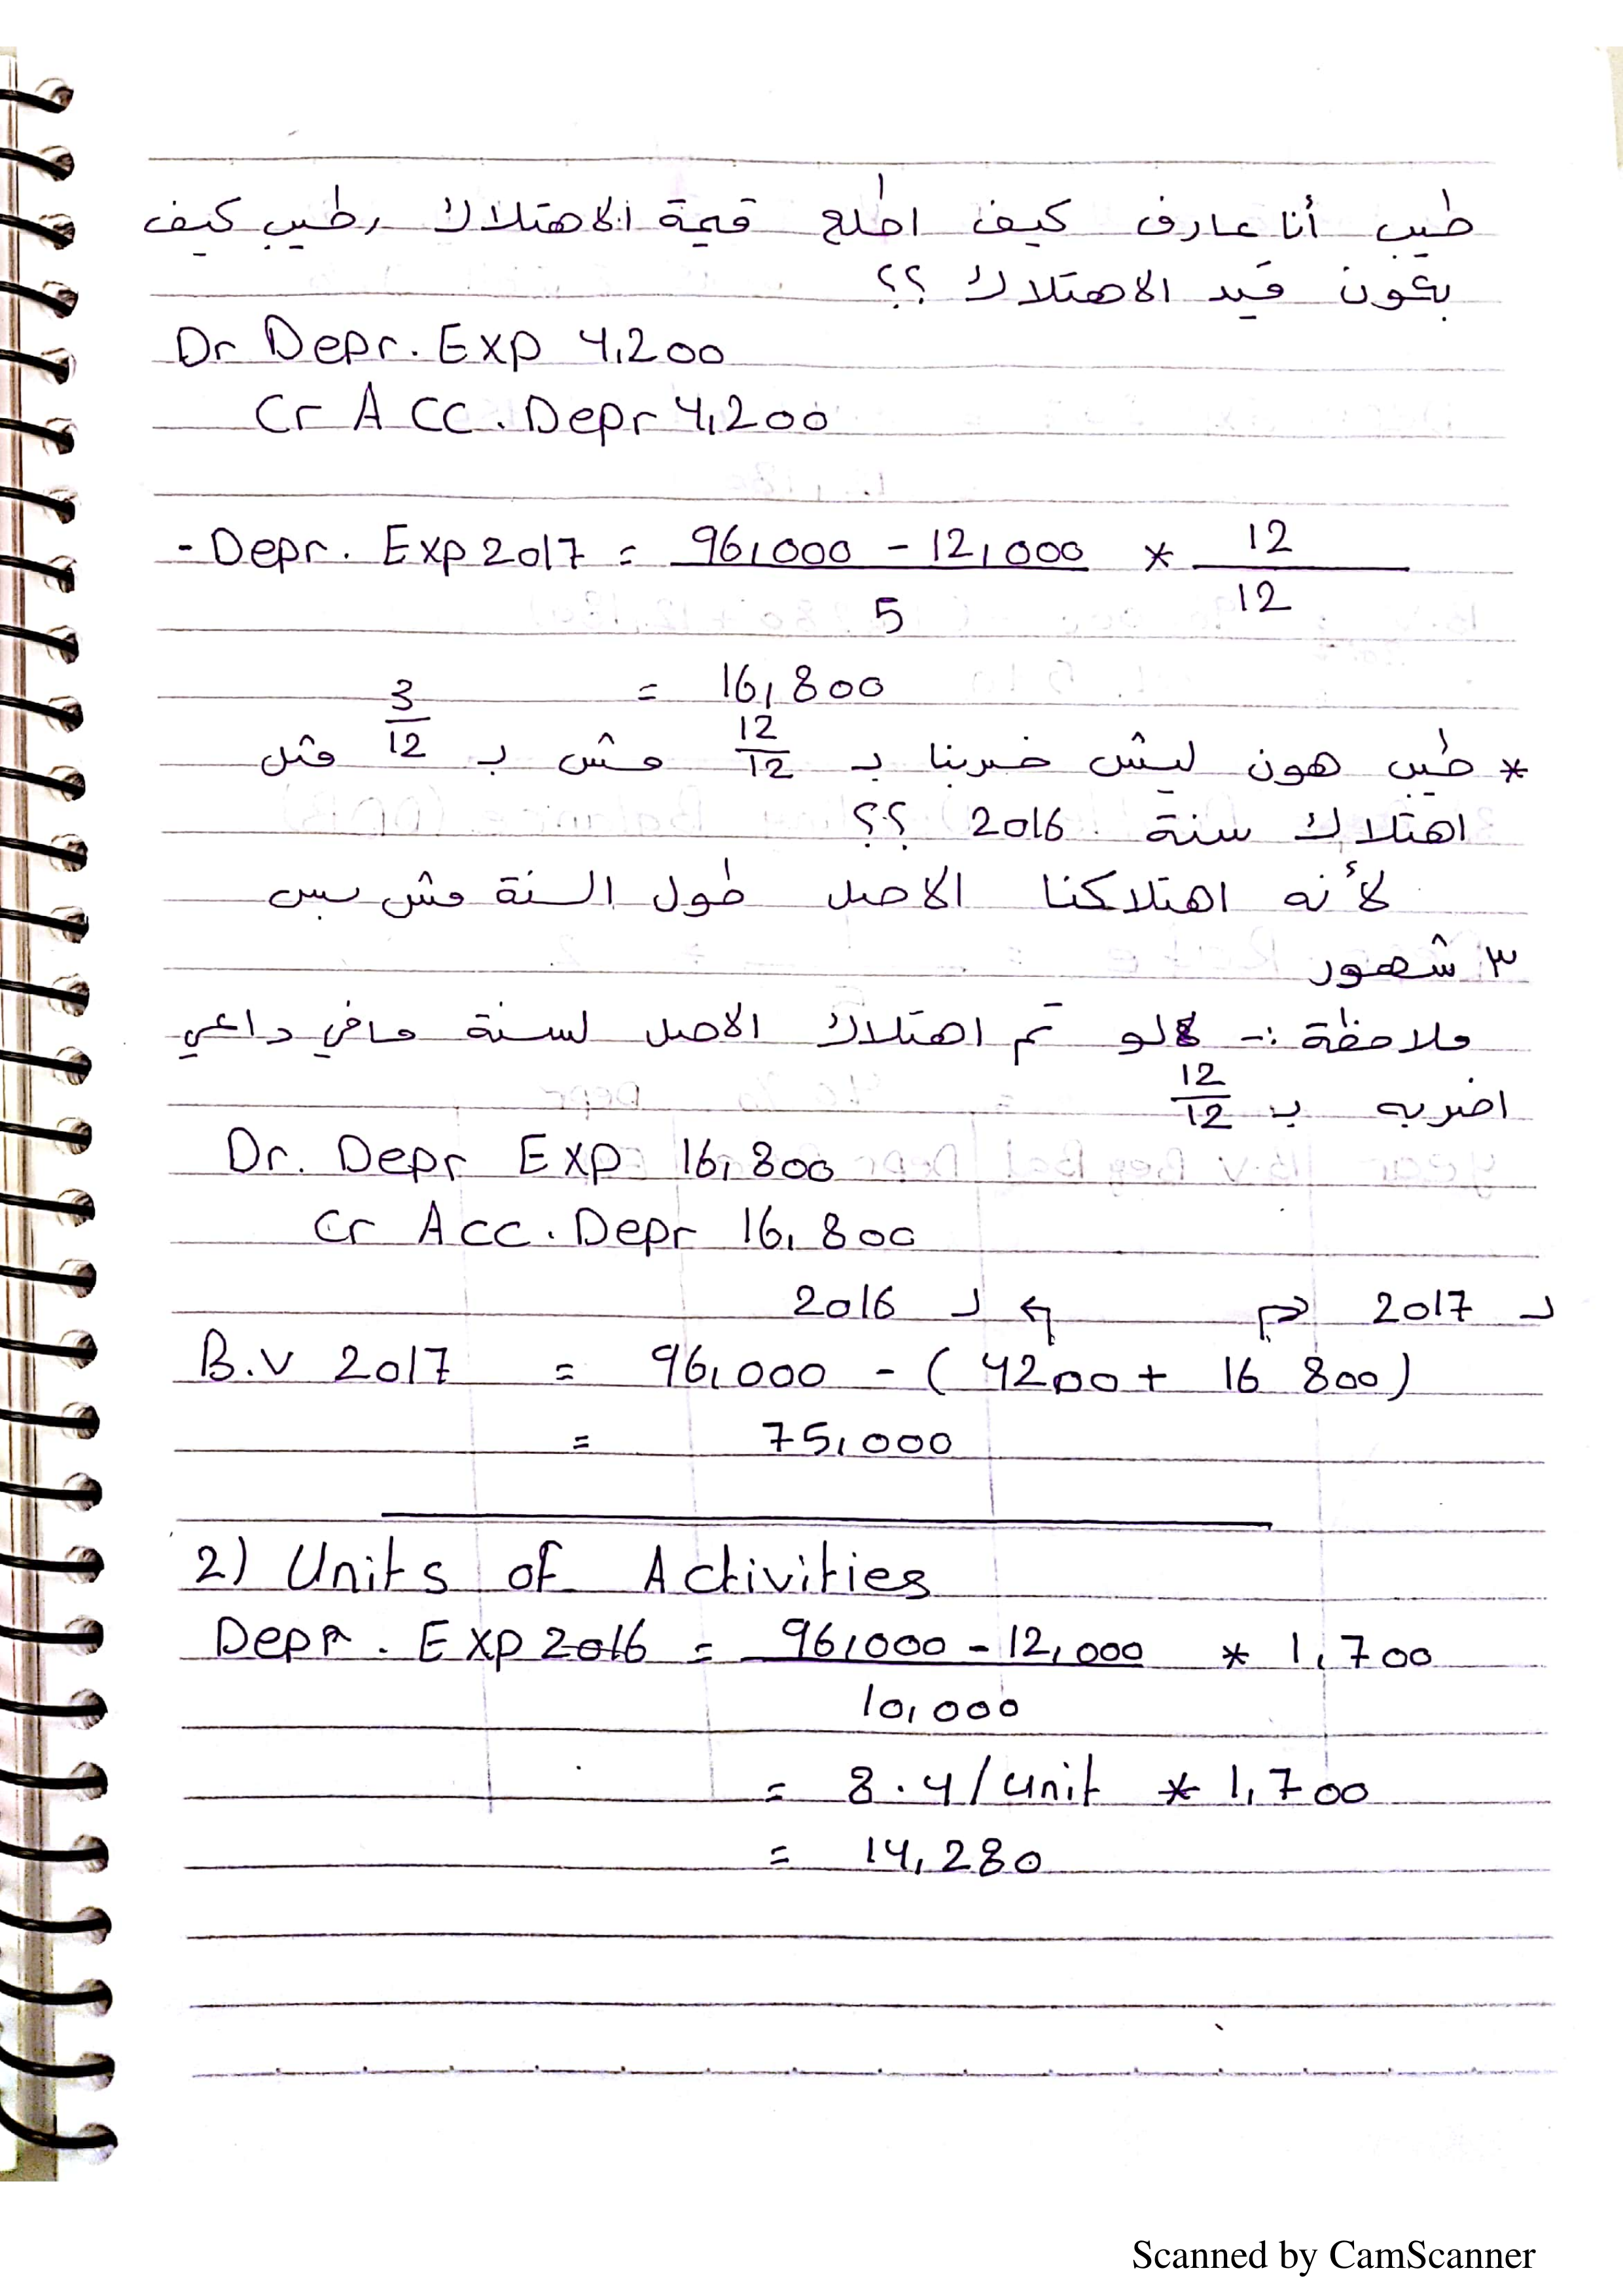 طيب أنا عارف كيف اطلع قيمة الاهتلاك , طيب كيف
بكون قيد الاهتلاك ؟؟
Dr Depr. Exp 4,200
Cr Acc. Depr 4,200
- Depr. Exp 2017 = 96,000 - 12,000 * 12
5 12
= 16,800
* طيب هون ليش ضربنا بـ 12/12 مش بـ 3/12 مثل
اهتلاك سنة 2016 ؟؟
لأنه اهتلاكنا الاصل طول السنة مش بس
٣ شهور
ملاحظة :- لو تم اهتلاك الاصل لسنة مافي داعي
اضربه بـ 12/12
Dr. Depr Exp 16,800
Cr Acc. Depr 16,800
لـ 2017 لـ 2016
B.V 2017 = 96,000 - (4200 + 16 800)
= 75,000
2) Units of Activities
Depr. Exp 2016 = 96,000 - 12,000 * 1,700
10,000
= 8.4/unit * 1,700
= 14,280
Scanned by CamScanner